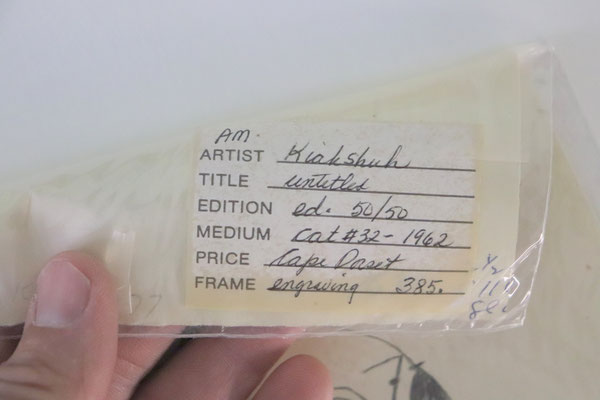 AM.
ARTIST Kiakshuk
TITLE untitled
EDITION ed. 50/50
MEDIUM Cat #32-1962
PRICE Cape Dorset
FRAME engraving 385.